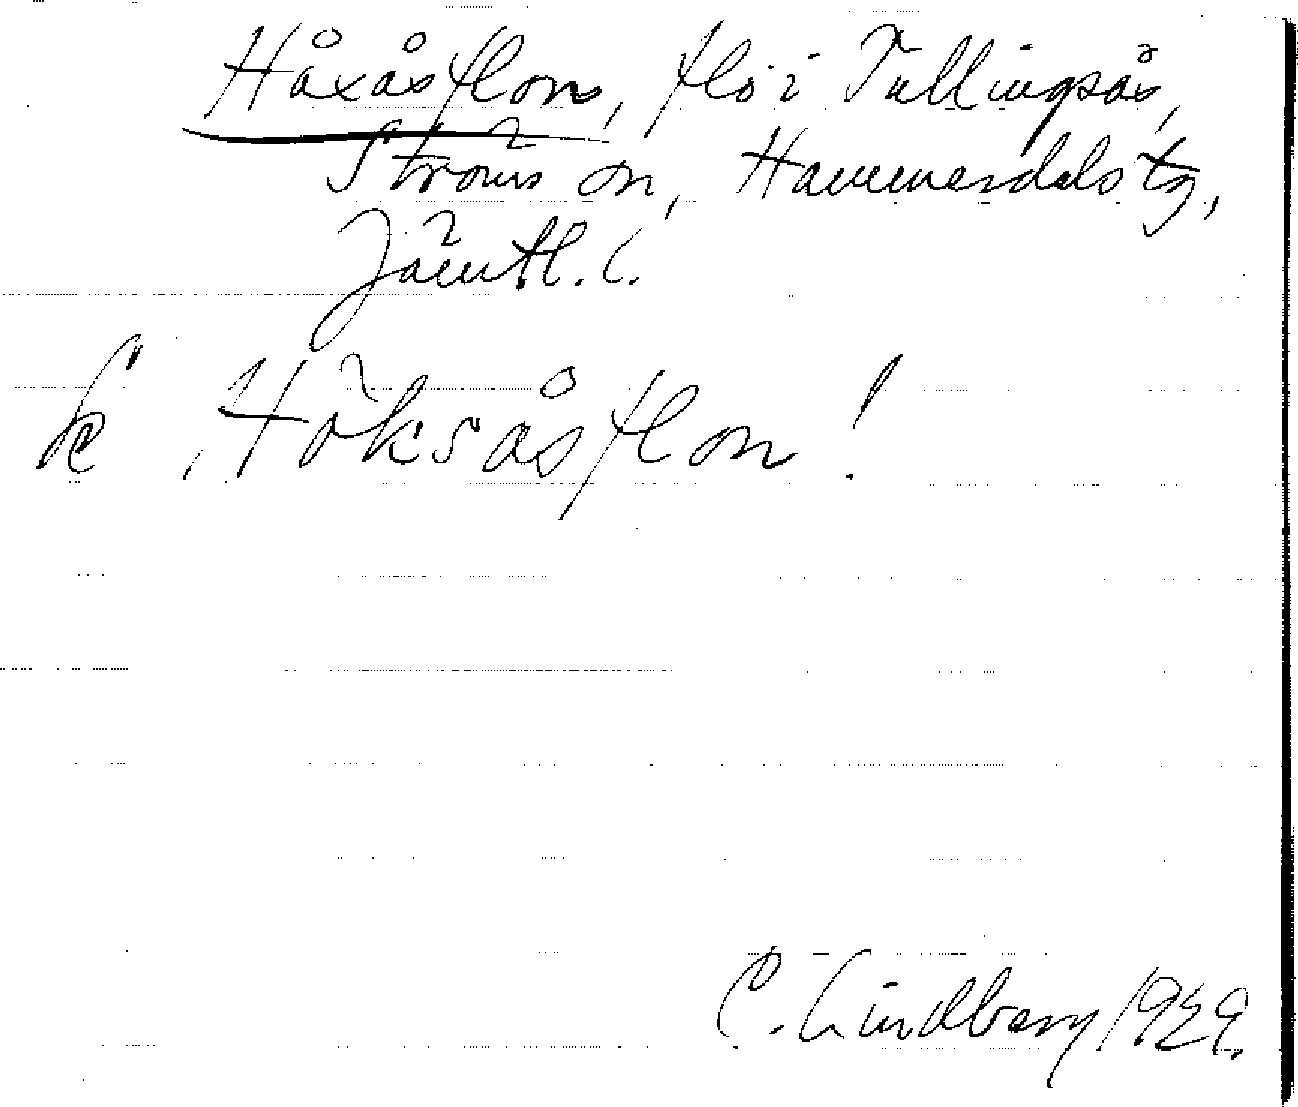 Håxåsflon, flo i Tullingsås,
Ströms sn, Hammerdals tg,
Jämtl. l.
k Höksåsflon!
C. Lindberg 1929.